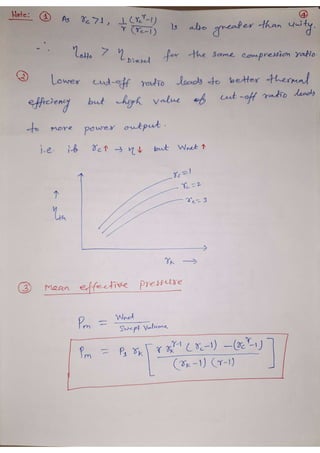 ④
Note: ① As rc>1, 1/γ (rc^γ-1)/(rc-1) is also greater than unity.
∴ ηotto > ηDiesel for the same compression ratio
② Lower cut-off ratio leads to better thermal
efficiency but high value of cut-off ratio leads
to more power output.
i.e if rc↑ → η↓ but Wnet↑
rc=1
rc=2
rc=3
↑
ηth
rk →
③ Mean effective pressure
Pm = Wnet / Swept Volume
Pm = P1 rk [ (γ rk^(γ-1) (rc-1) - (rc^γ-1)) / ((rk-1) (γ-1)) ]